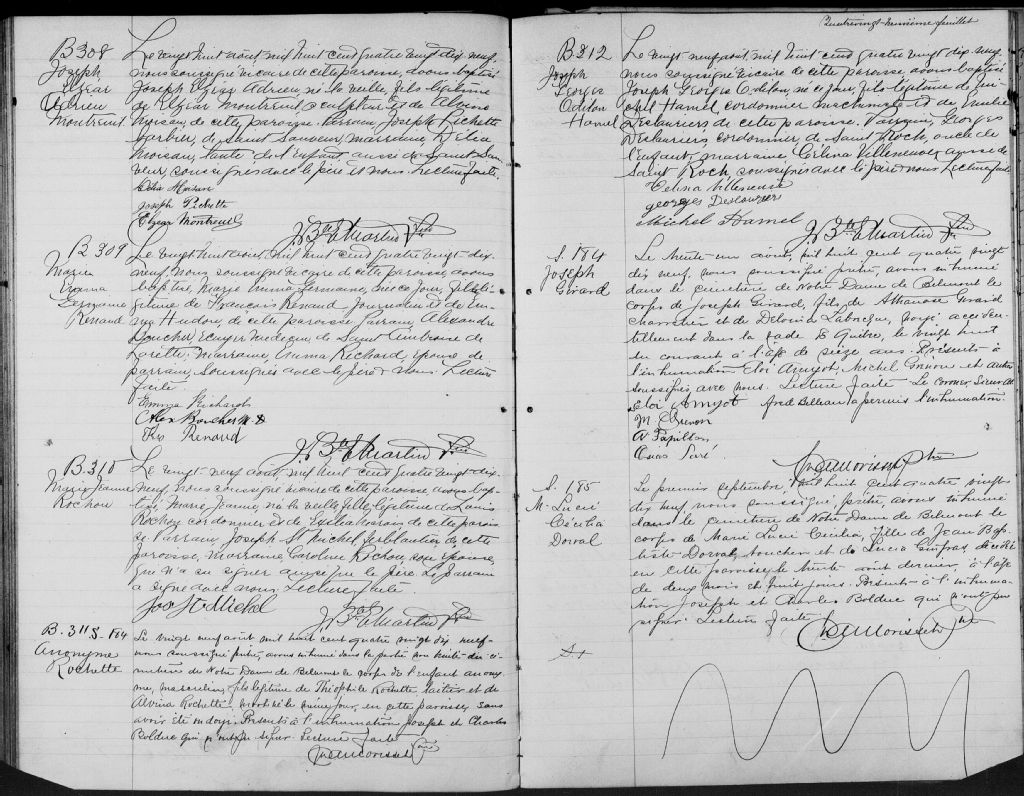 B 308
Joseph
Elzéar
Adrien
Montreuil
Le vingt huit août, mil huit cent quatre vingt dix neuf,
nous soussigné vicaire de cette paroisse, avons baptisé
Joseph Elzéar Adrien, né la veille, fils légitime
de Elzéar Montreuil sculpteur et de
Moisan, de cette paroisse. Parrain, Joseph Pichette
de Saint Sauveur, marraine, Délia
Moisan, tante de l'enfant aussi de Saint Sau-
veur, soussignés avec le père et nous. Lecture faite.
Délia Moisan
Joseph Pichette
Elzéar Montreuil
J. Bte E Martin Ptre
B 309
Marie
Emma
Germaine
Renaud
Le vingt huit août, mil huit cent quatre vingt dix
neuf, nous soussigné vicaire de cette paroisse, avons
baptisé, Marie Emma Germaine, née ce jour, fille lé-
gitime de François Renaud journalier et de Em-
ma Hudon, de cette paroisse. Parrain, Alexandre
Boucher, écuyer médecin de Saint Ambroise de
Lorette. Marraine, Emma Richard, épouse de
parrain, soussignés avec le père & nous. Lecture
faite.
Emma Richard
Alex Boucher M.D
Frs Renaud
J. Bte E Martin Ptre
B. 310
Marie Jeanne
Rochon
Le vingt neuf août, mil huit cent quatre vingt dix-
neuf, nous soussigné vicaire de cette paroisse, avons bap-
tisé, Marie Jeanne, née la veille, fille légitime de Louis
Rochon cordonnier et de de cette parois-
se. Parrain, Joseph St Michel ferblantier de cette
paroisse, marraine Caroline Rochon, son épouse,
qui n'a su signer ainsi que le père. Le parrain
a signé avec nous. Lecture faite.
Jos St Michel
J. Bte E Martin Ptre
B. 311 S. 184
Anonyme
Rochette
Le vingt neuf août mil huit cent quatre vingt dix neuf
nous soussigné prêtre, avons inhumé dans la partie non bénite du ci-
metière de Notre Dame de Belmont le corps de l'enfant anony-
me, masculin, fils légitime de Théophile Rochette, laitier et de
Alvina Rochette, mort né le même jour, en cette paroisse, sans
avoir été ondoyé. Présents à l'inhumation Joseph et Charles
Bolduc qui n'ont pu signer. Lecture faite
Morisset Ptre
Quatrevingt-neuvième feuillet
B 312
Joseph
Georges
Odilon
Hamel
Le vingt neuf août, mil huit cent quatre vingt dix neuf,
nous soussigné vicaire de cette paroisse avons baptisé
Joseph Georges Odilon, né ce jour, fils légitime de Mi-
chel Hamel cordonnier machiniste et de
Deslauriers de cette paroisse. Parrain, Georges
Deslauriers, cordonnier, de Saint Roch, oncle de
l'enfant, marraine Célina Villeneuve, aussi de
Saint Roch, soussignés avec le père & nous Lecture faite
Celina Villeneuve
georges Deslaurier
Michel Hamel
J. Bte E Martin Ptre
S. 184
Joseph
Girard
Le trente un août, mil huit cent quatre vingt
dix neuf, nous soussigné prêtre, avons inhumé
dans le cimetière de Notre Dame de Belmont le
corps de Joseph Girard, fils de Athanase Girard
charretier et de Labrecque, noyé acciden-
tellement dans la rade de Québec, le vingt huit
du courant à l'âge de seize ans. Présents à
l'inhumation Eloi Amyot, Michel Grenon et autres
soussignés avec nous. Lecture faite. Le coroner, Sieur
Eloi Amyot fred Belleau a permis l'inhumation.
M. Grenon
A Papillon
Morisset Ptre
S. 185
M. Lucie
Céulia
Dorval
Le premier septembre mil huit cent quatre vingt
dix neuf nous soussigné, prêtre, avons inhumé
dans le cimetière de Notre Dame de Belmont le
corps de Marie Lucie fille de Jean Bap-
tiste Dorval boucher et de Lucia décédée
en cette paroisse, le trente août dernier, à l'âge
de deux mois et huit jours. Présents à l'inhuma-
tion Joseph et Charles Bolduc qui n'ont pu
signer. Lecture faite
Morisset Ptre